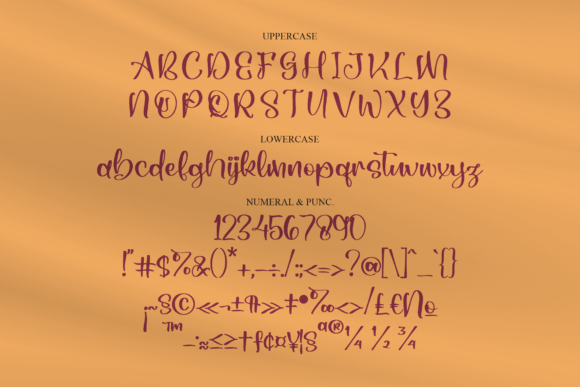 UPPERCASE
ABCDEFGHIJKLM
NOPQRSTUVWXYZ
LOWERCASE
abcdefghijklmnopqrstuvwxyz
NUMERAL & PUNC.
1234567890
!"#$%&()*+,−÷./:;<=>?@[\]^_`{}
¡~§©≪¬±¶≫‡•‰<>/£€№
™−·≈≤≥†ƒ¢¤¥¦Šª®¼½¾